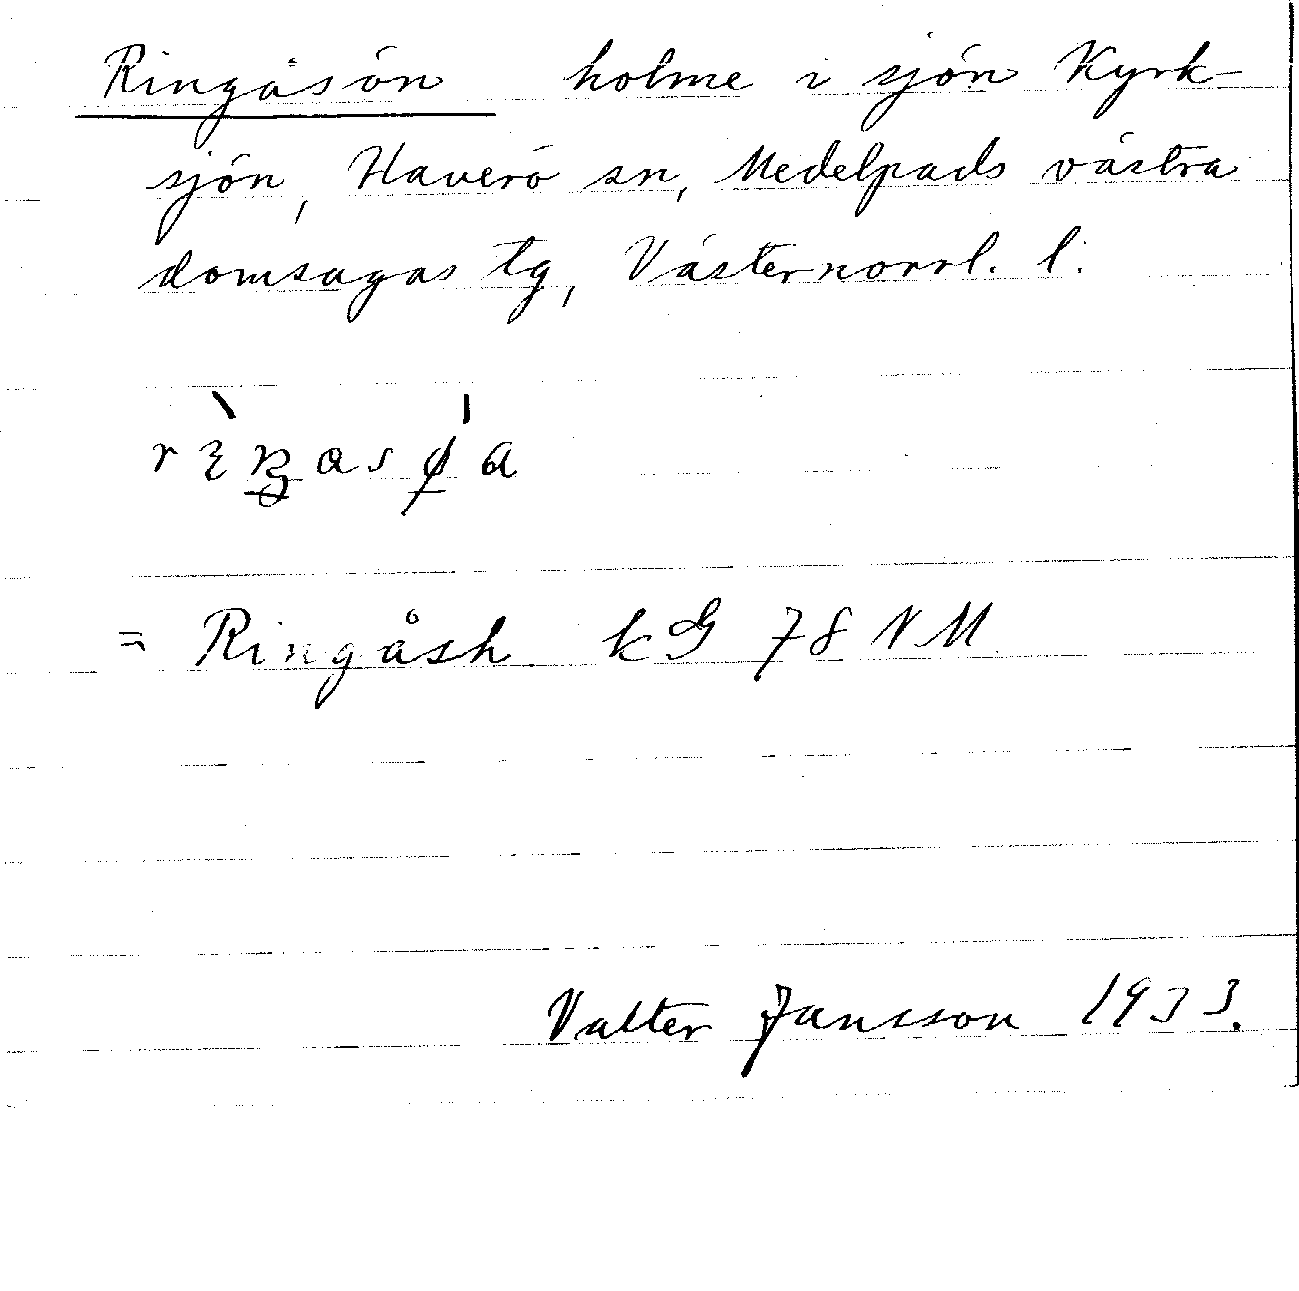 Ringåsön holme i sjön Kyrk-
sjön, Haverö sn, Medelpads västra
domsagas tg, Västernorrl. l.
= Ringåsh kG 78 NM
Valter Jansson 1933.